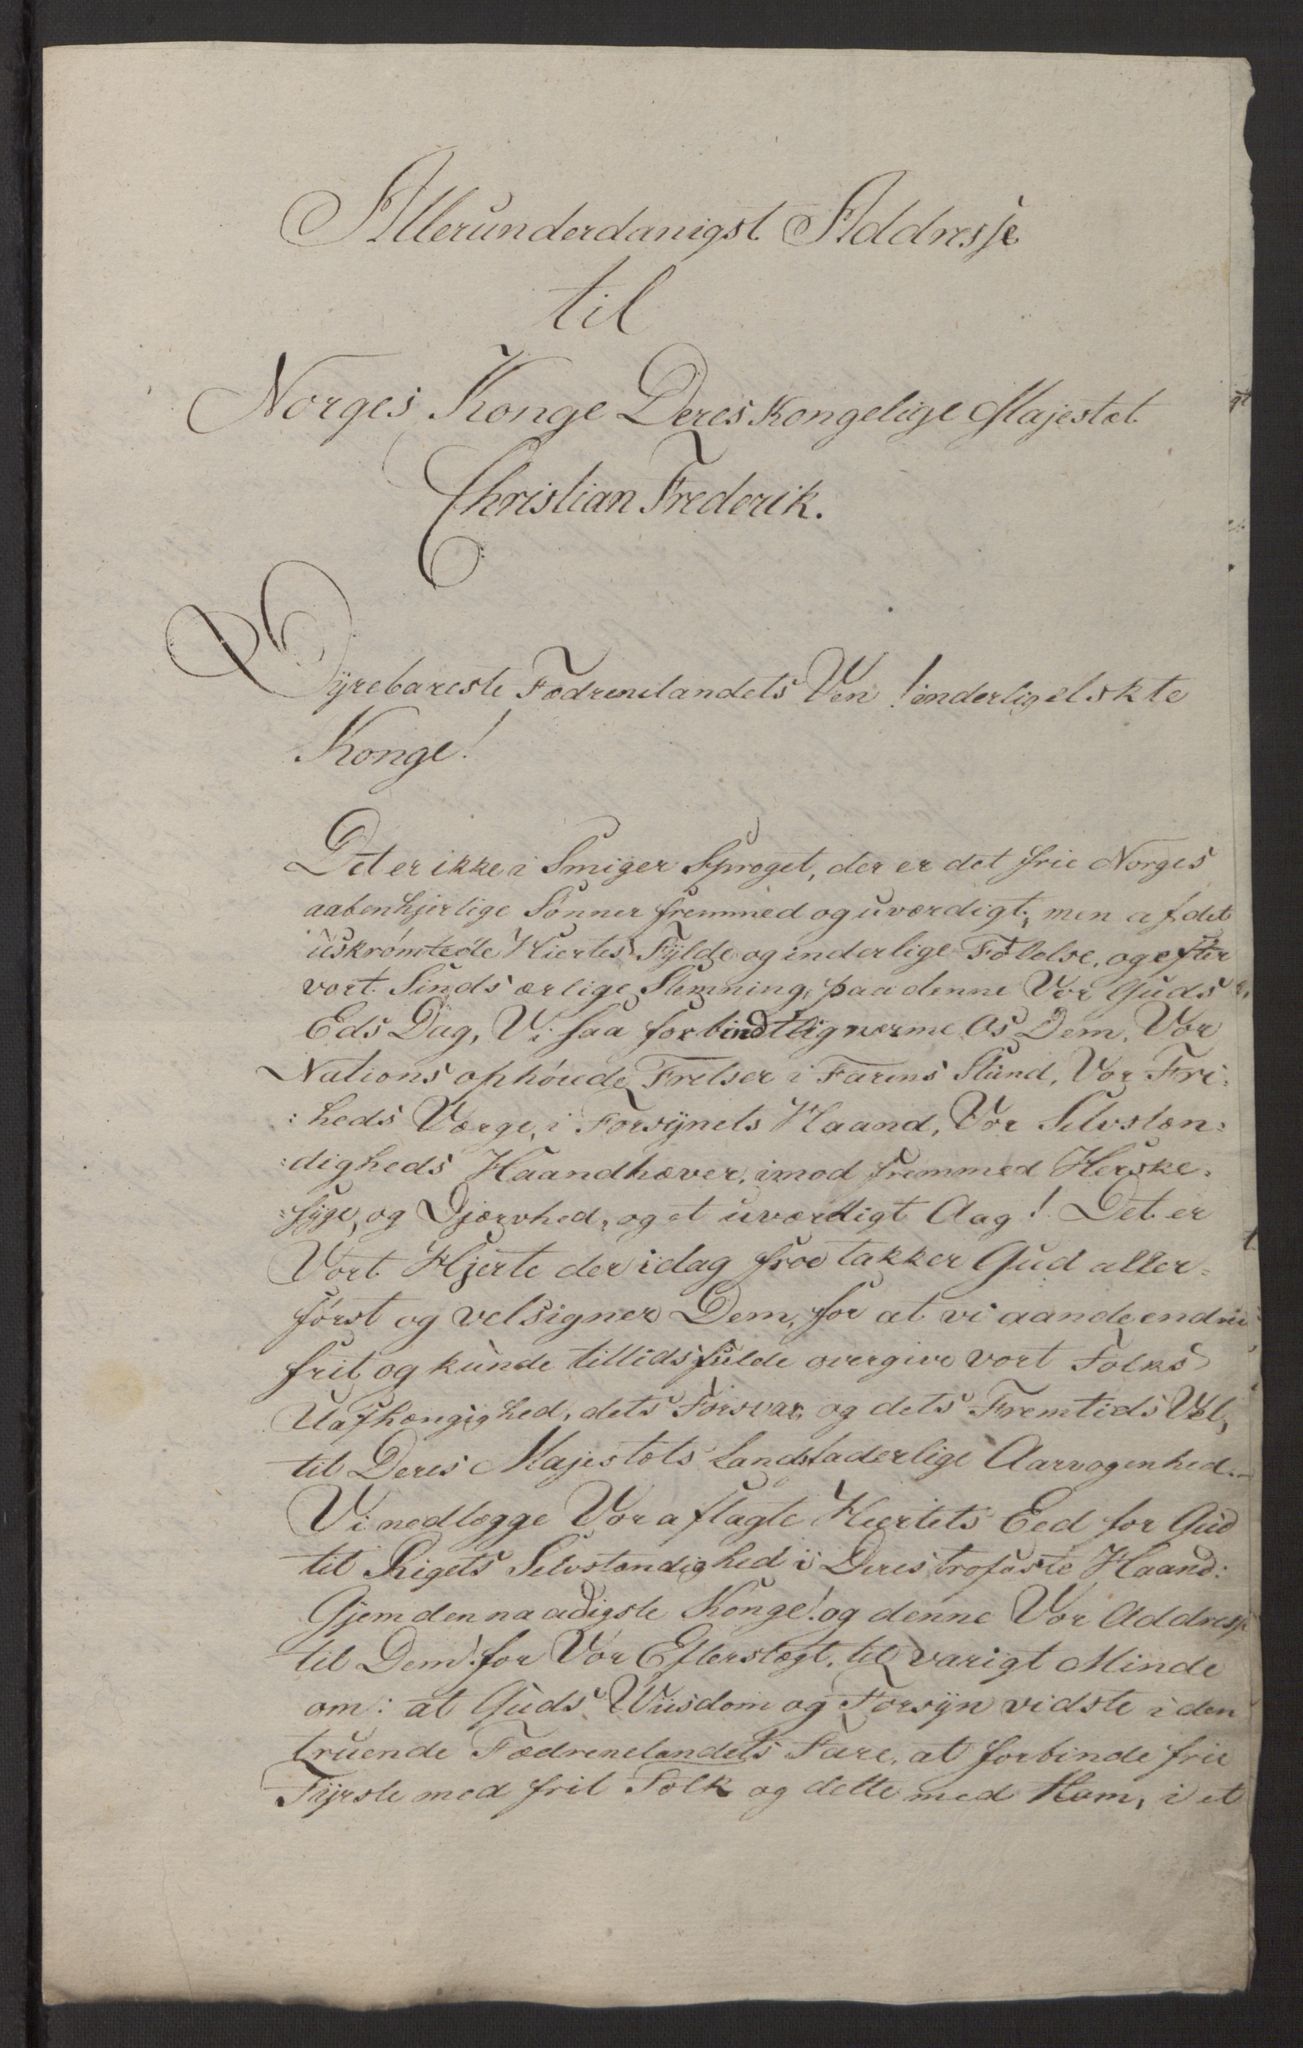 Allerunderdanigst Addresse
til
Norges Konge Deres Kongelige Majestæt
Christian Frederik.
Dÿrebareste Fædrenelandets Ven! inderligelskte
Konge!
Det er ikke i Smiger Sproget, der er det frie Norges
aabenhjertige Sønner fremmed og uværdigt, men af det
uskrømtede Hiertes Fÿlde og inderlige Følelse, og efter
vort Sinds ærlige Stemning, paa denne Vor Guds
Eds Dag, Vi saa forbindtlig nærme Os Dem, Vor
Nations ophøiede Frelser i Farens Stund, Vor Fri-
:heds Værge, i Forsÿnets Haand, Vor Selvstæn-
:digheds Haandhæver, imod fremmed Herske-
:sÿge, og Djærvhed, og et uværdigt Aag! Det er
Vort Hjerte der idag froe takker Gud aller-
først og velsigner Dem, for at vi aande endnu
frit og kunde tillidsfulde overgive vort Folks
Uafhængighed, dets Forsvar, og dets Fremtids Vel,
til Deres Majestæts Landsfaderlige Aarvogenhed.
Vi nedlægge Vor aflagte Hiertets Eed for Gud
til Rigets Selvstændighed i Deres trofaste Haand:
Gjem den naadigste Konge! og denne Vor Addresse
til Dem! for Vor Efterslægt, til varigt Minde
om: at Guds Viisdom og Forsÿn vidste i den
truende Fædrenelandets Fare, at forbinde frie
Fÿrste med frit Folk og dette med Ham, i et